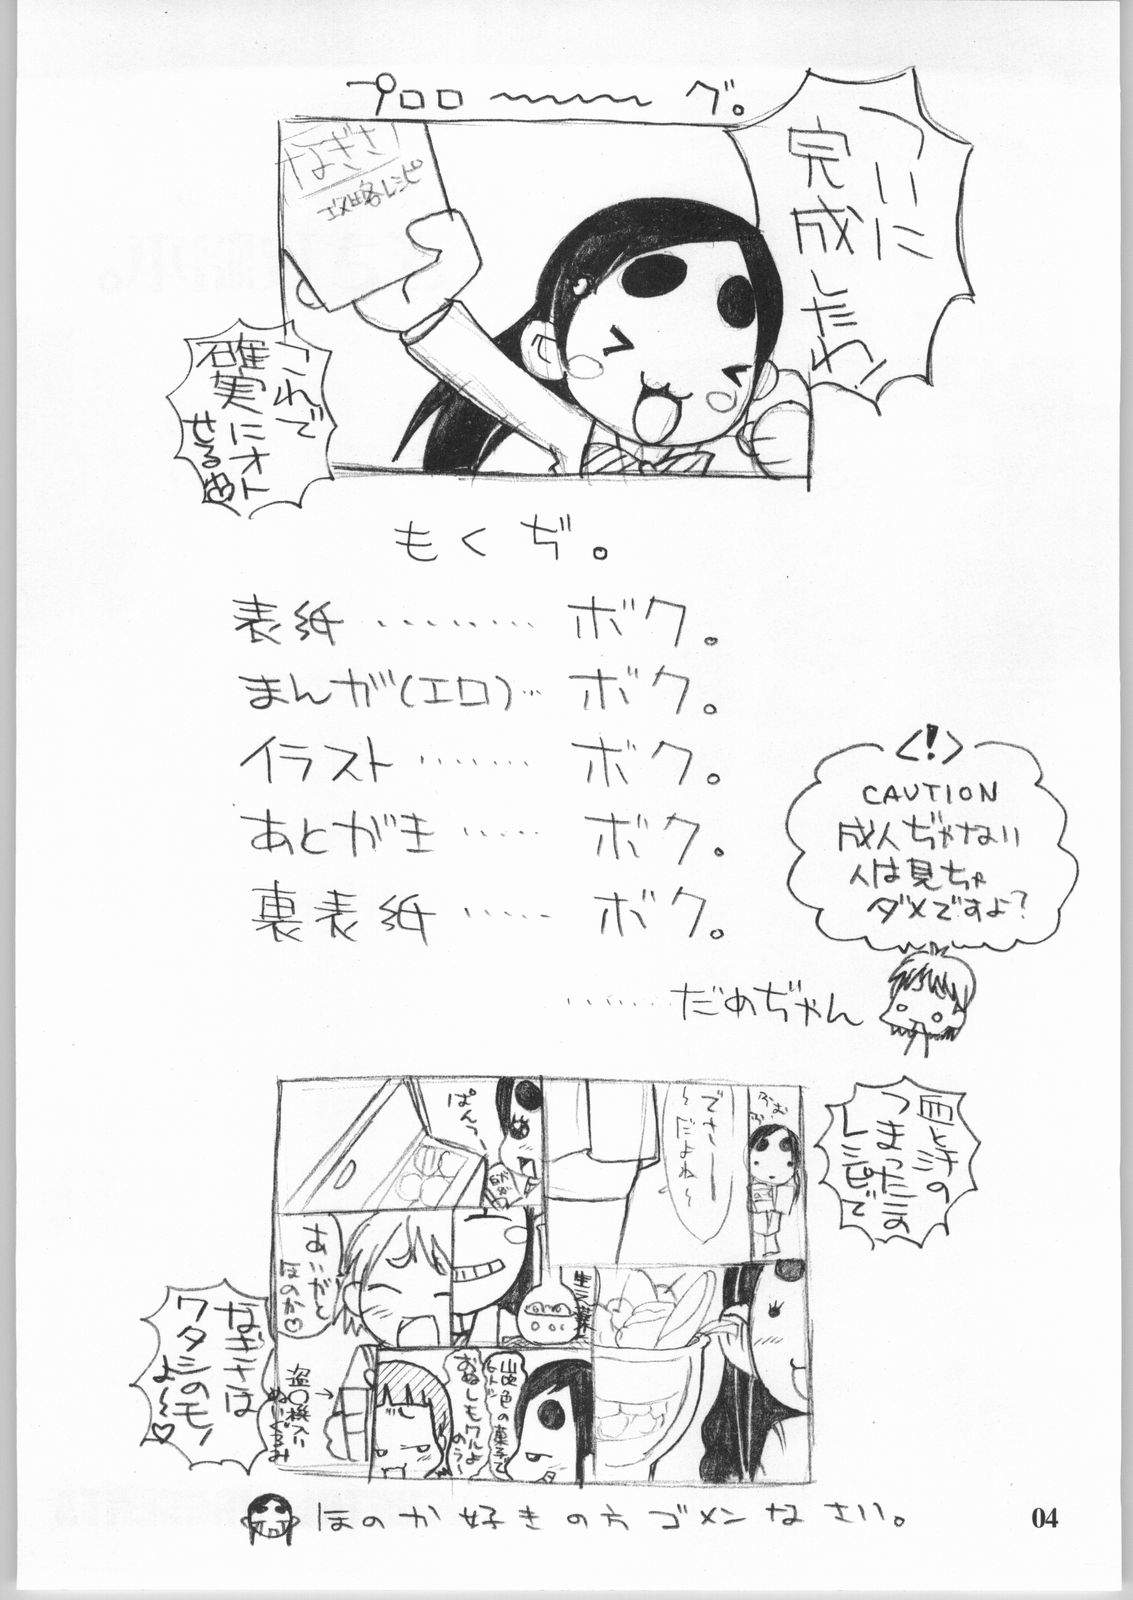 プロロ〜〜〜グ。
ついに
完成したわ!
なぎさ
攻略レシピ
これで
確実にオト
せるわ
もくぢ。
表紙………ボク。
まんが(エロ)…ボク。
イラスト………ボク。
あとがき……ボク。
裏表紙……ボク。
………だめぢゃん
<!>
CAUTION
成人ぢゃない
人は見ちゃ
ダメですよ?
血と汗の
つまったこの
レシピで
ふむ
ふむ
でさー
〜だよね〜
ぱんつ
ありがと
ほのか♡
山吹色の菓子で
おぬしもワルよ
のう〜
盗〇機入り
ぬいぐるみ
なぎさは
ワタシのモノ
よ〜♡
ほのか好きの方ゴメンなさい。
04